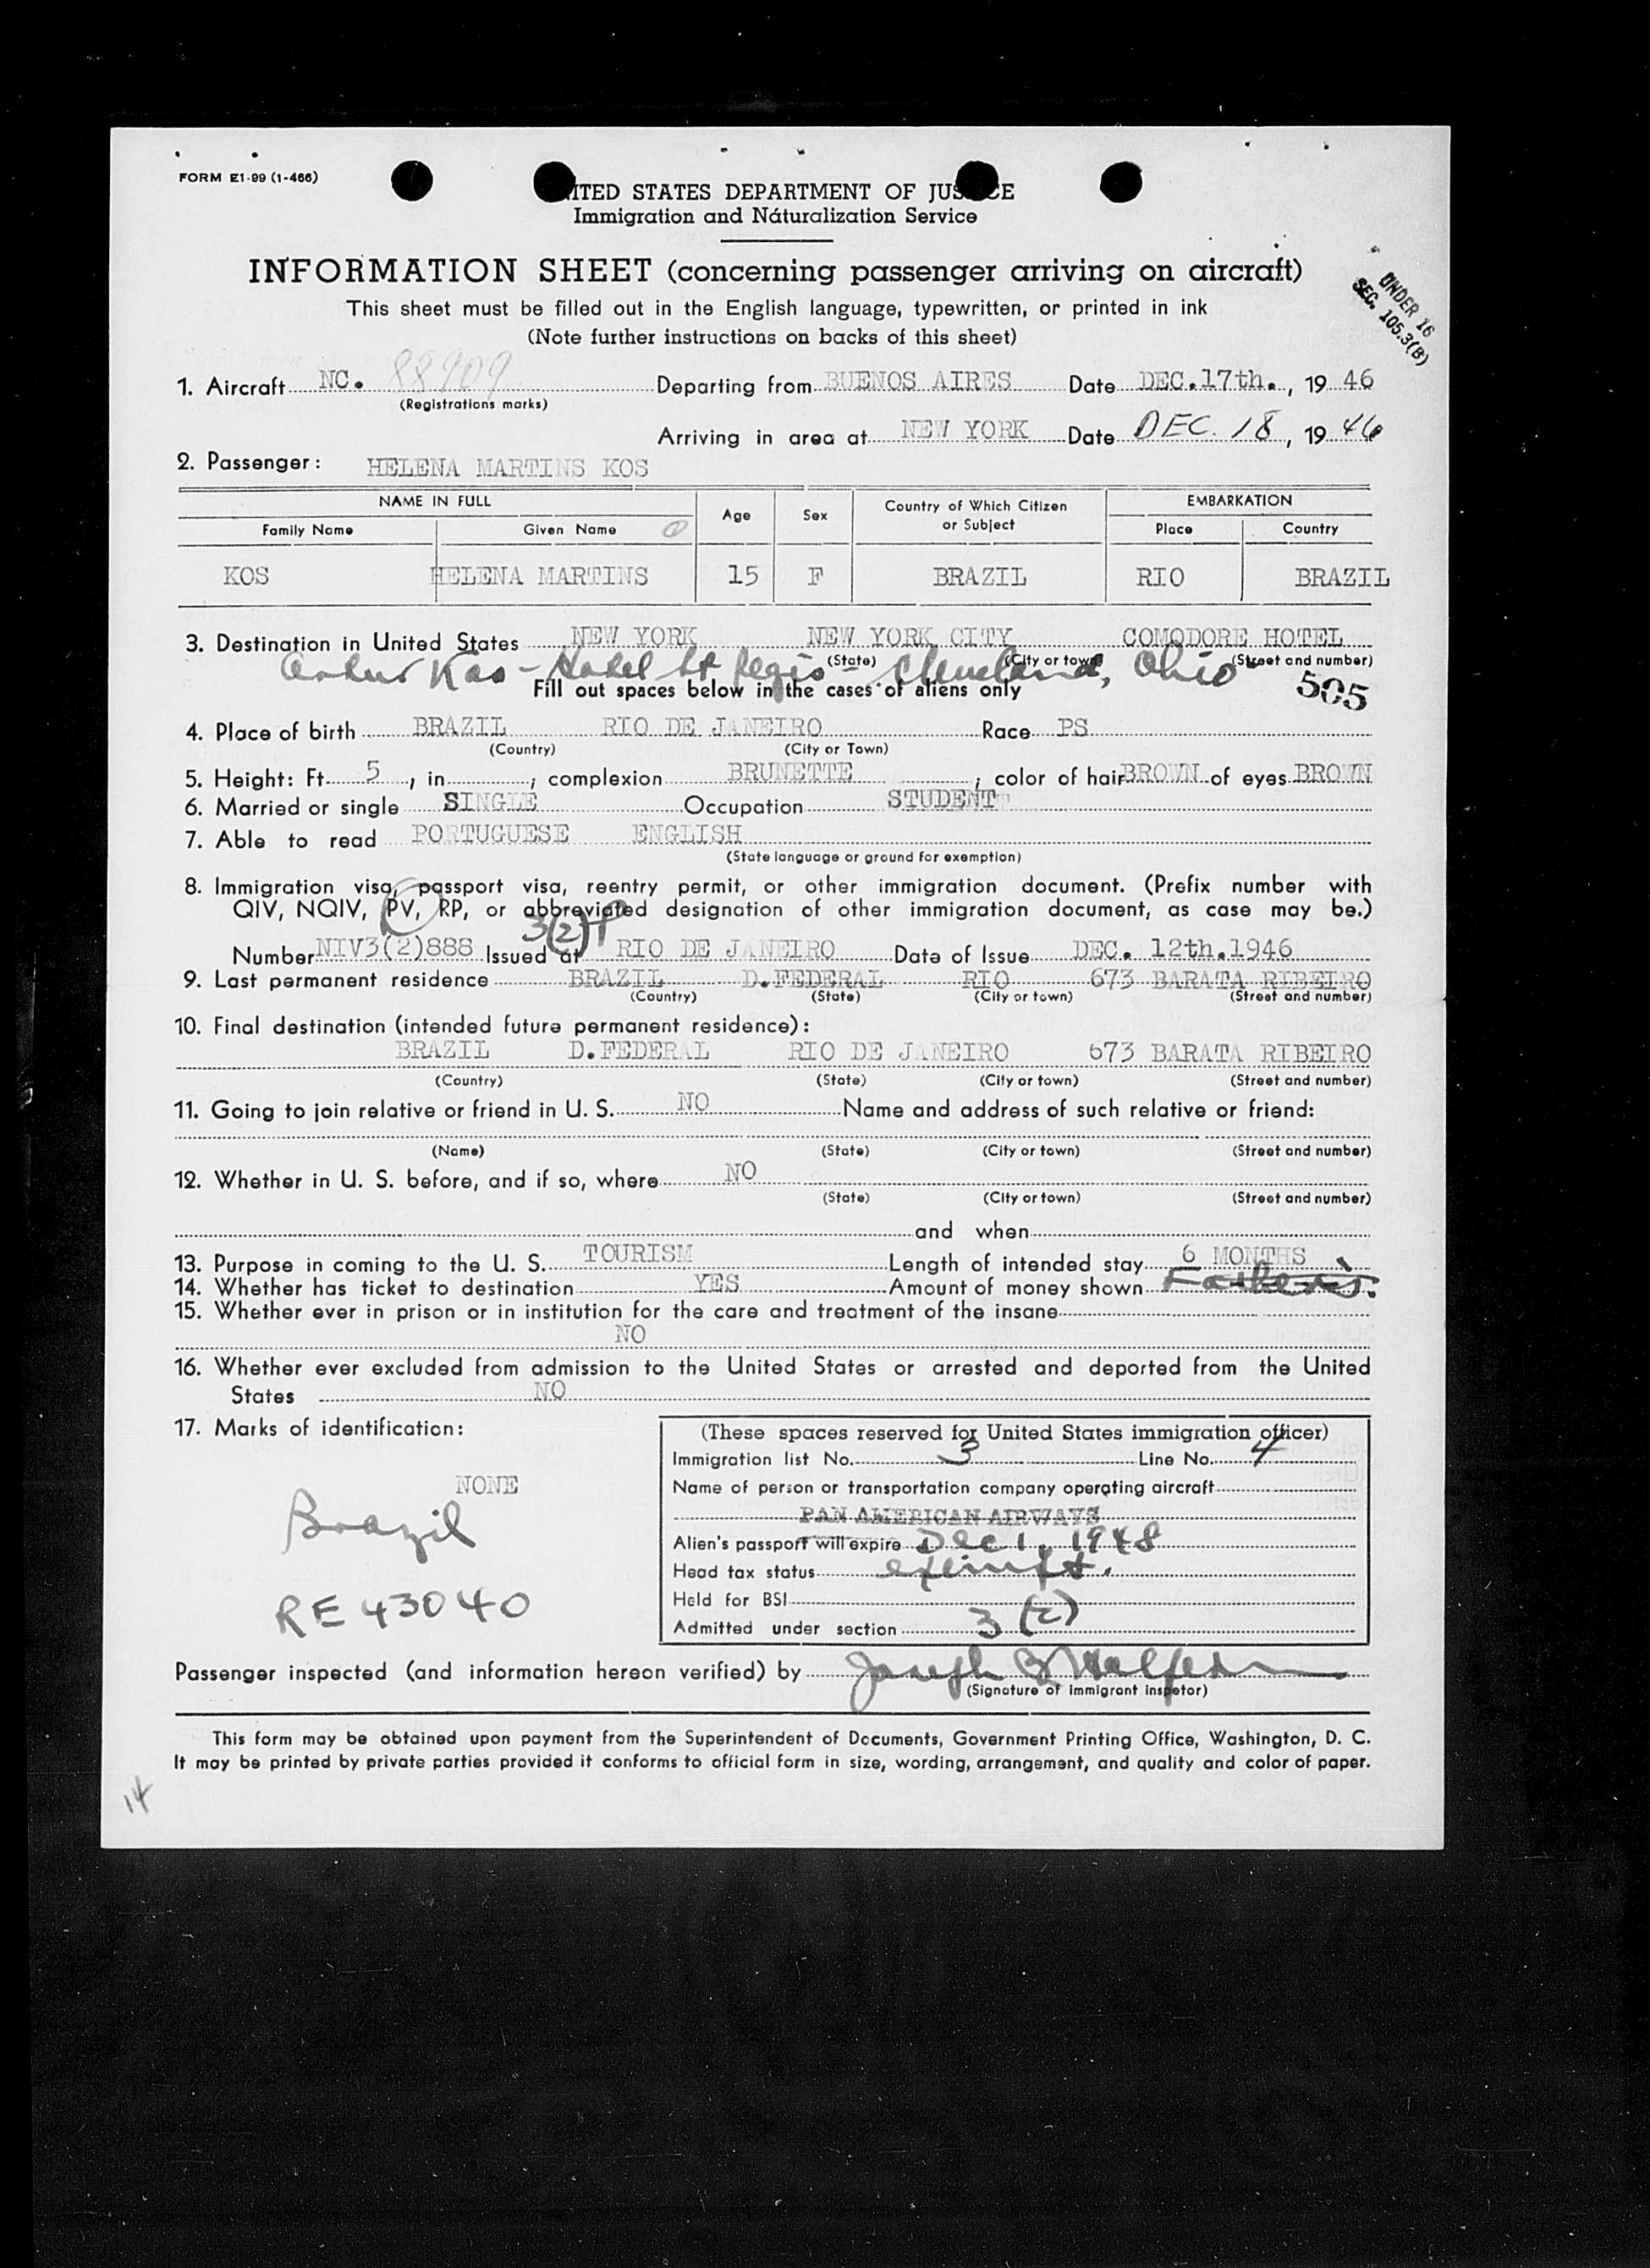 FORM E1-99 (1-466)
UNITED STATES DEPARTMENT OF JUSTICE
Immigration and Naturalization Service
INFORMATION SHEET (concerning passenger arriving on aircraft)
UNDER 16
SEC. 105.3(B)
This sheet must be filled out in the English language, typewritten, or printed in ink
(Note further instructions on backs of this sheet)
1. Aircraft NC. 88909 Departing from BUENOS AIRES Date DEC.17th., 19 46
(Registrations marks)
Arriving in area at NEW YORK Date DEC. 18, 19 46
2. Passenger: HELENA MARTINS KOS
NAME IN FULL Age Sex Country of Which Citizen or Subject EMBARKATION
Family Name Given Name Place Country
KOS HELENA MARTINS 15 F BRAZIL RIO BRAZIL
3. Destination in United States NEW YORK NEW YORK CITY COMODORE HOTEL
(State) (City or town) (Street and number)
Artur Kos - Hotel St Regis - Cleveland, Ohio
Fill out spaces below in the cases of aliens only 505
4. Place of birth BRAZIL RIO DE JANEIRO Race PS
(Country) (City or Town)
5. Height: Ft. 5, in ; complexion BRUNETTE ; color of hair BROWN of eyes BROWN
6. Married or single SINGLE Occupation STUDENT
7. Able to read PORTUGUESE ENGLISH
(State language or ground for exemption)
8. Immigration visa, passport visa, reentry permit, or other immigration document. (Prefix number with
QIV, NQIV, PV, RP, or abbreviated designation of other immigration document, as case may be.)
3(2)P
Number NIV3(2)888 Issued at RIO DE JANEIRO Date of Issue DEC. 12th.1946
9. Last permanent residence BRAZIL D.FEDERAL RIO 673 BARATA RIBEIRO
(Country) (State) (City or town) (Street and number)
10. Final destination (intended future permanent residence):
BRAZIL D.FEDERAL RIO DE JANEIRO 673 BARATA RIBEIRO
(Country) (State) (City or town) (Street and number)
11. Going to join relative or friend in U. S. NO Name and address of such relative or friend:
(Name) (State) (City or town) (Street and number)
12. Whether in U. S. before, and if so, where NO
(State) (City or town) (Street and number)
and when
13. Purpose in coming to the U. S. TOURISM Length of intended stay 6 MONTHS
14. Whether has ticket to destination YES Amount of money shown Father's.
15. Whether ever in prison or in institution for the care and treatment of the insane
NO
16. Whether ever excluded from admission to the United States or arrested and deported from the United
States NO
17. Marks of identification:
NONE
Brazil
RE 43040
(These spaces reserved for United States immigration officer)
Immigration list No. 3 Line No. 4
Name of person or transportation company operating aircraft
PAN AMERICAN AIRWAYS
Alien's passport will expire Dec 1, 1948
Head tax status exempt.
Held for BSI
Admitted under section 3(2)
Passenger inspected (and information hereon verified) by Joseph
(Signature of immigrant inspetor)
This form may be obtained upon payment from the Superintendent of Documents, Government Printing Office, Washington, D. C.
It may be printed by private parties provided it conforms to official form in size, wording, arrangement, and quality and color of paper.
14